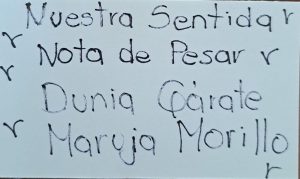 Nuestra Sentida
Nota de Pesar
Dunia Gárate
Maruja Morillo